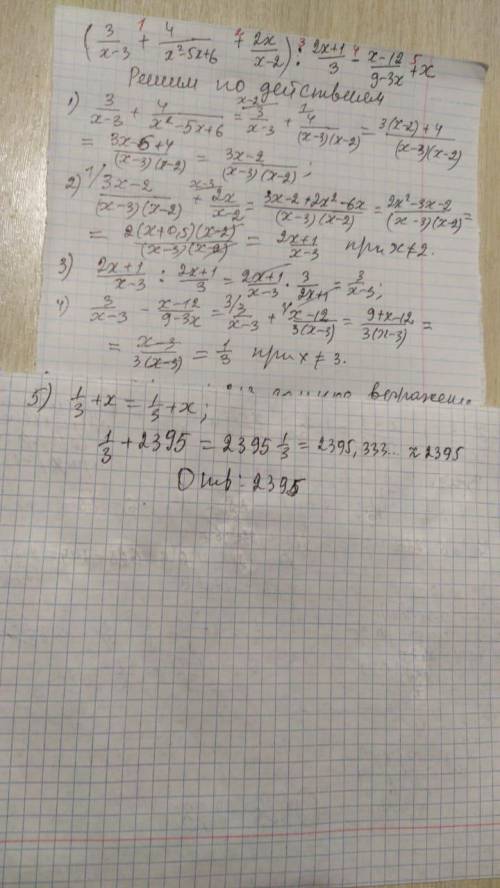 (3/(x-3) + 4/(x²-5x+6) + 2x/(x-2)) : (2x+1)/3 - (x-12)/(9-3x) + x
Решим по действиям
1) 3/(x-3) + 4/(x²-5x+6) = 3/(x-3) + 4/((x-3)(x-2)) = (3(x-2)+4)/((x-3)(x-2))
= (3x-6+4)/((x-3)(x-2)) = (3x-2)/((x-3)(x-2));
2) (3x-2)/((x-3)(x-2)) + 2x/(x-2) = (3x-2+2x²-6x)/((x-3)(x-2)) = (2x²-3x-2)/((x-3)(x-2)) =
= 2(x+0,5)(x-2)/((x-3)(x-2)) = (2x+1)/(x-3) при x≠2.
3) (2x+1)/(x-3) : (2x+1)/3 = (2x+1)/(x-3) · 3/(2x+1) = 3/(x-3);
4) 3/(x-3) - (x-12)/(9-3x) = 3/(x-3) + (x-12)/(3(x-3)) = (9+x-12)/(3(x-3)) =
= (x-3)/(3(x-3)) = 1/3 при x≠3.
5) 1/3 + x = 1/3 + x;
1/3 + 2395 = 2395 1/3 = 2395,333... ≈ 2395
Отв: 2395